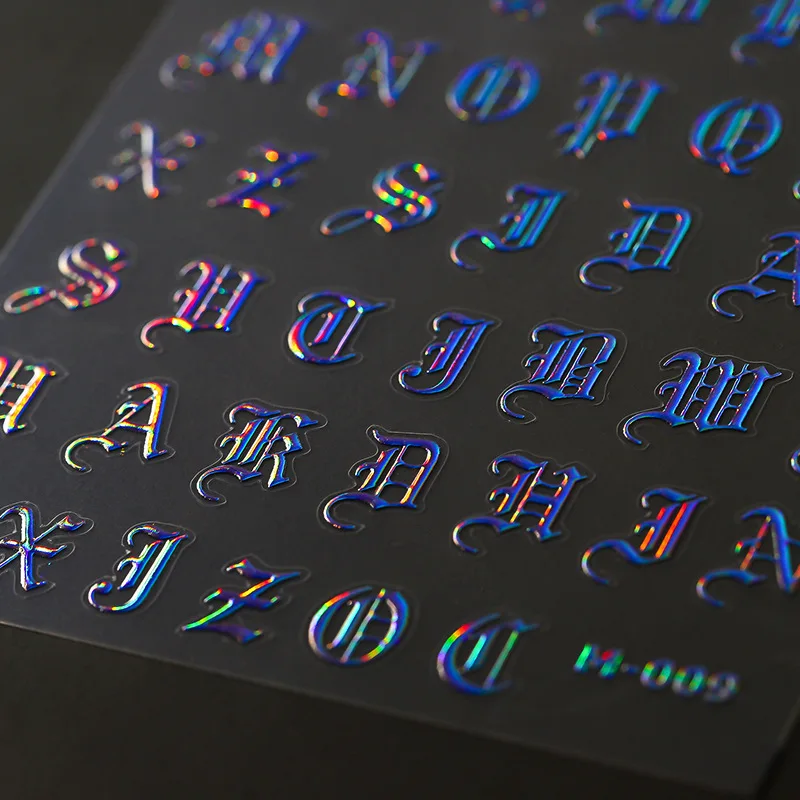 M N O P Q
X Z S I D A
S U T J B W
U A K D H I A
X J Z O C M-009